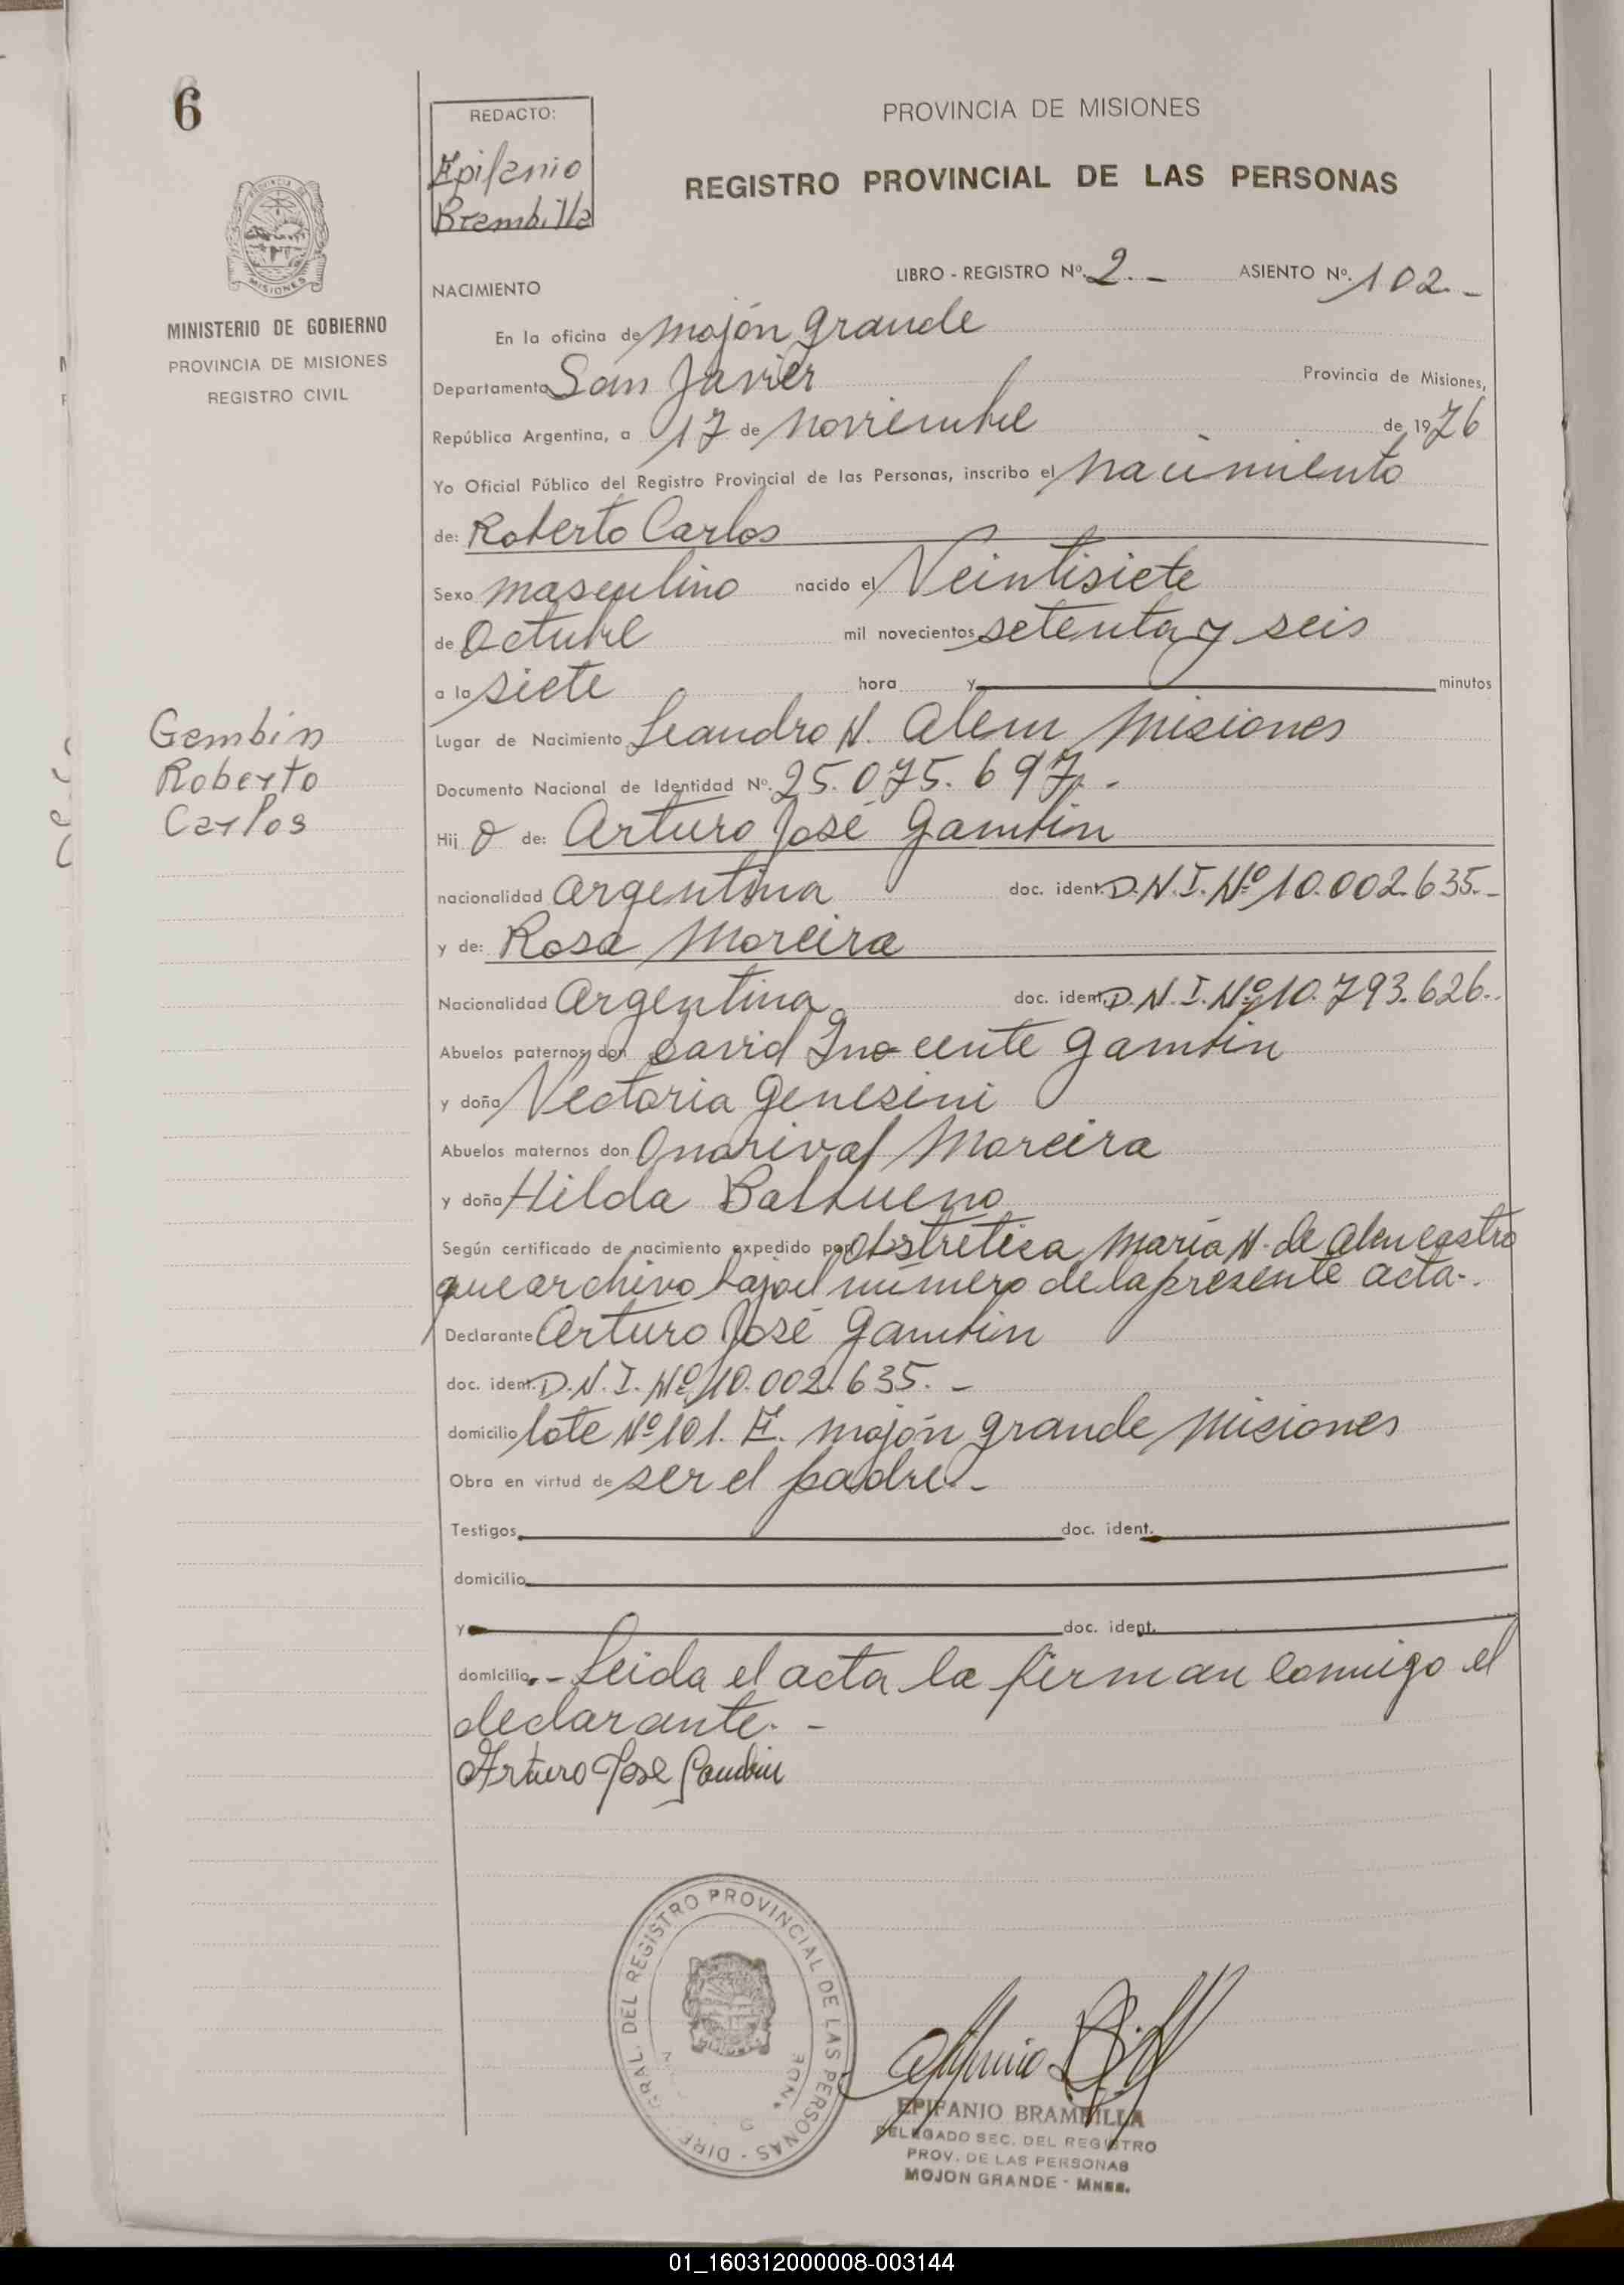 6
REDACTO:
Epifanio
Brambilla
PROVINCIA DE MISIONES
REGISTRO PROVINCIAL DE LAS PERSONAS
MISIONES
MINISTERIO DE GOBIERNO
PROVINCIA DE MISIONES
REGISTRO CIVIL
LIBRO - REGISTRO Nº. 2.- ASIENTO Nº. 102.-
NACIMIENTO
En la oficina de Mojón Grande
Departamento San Javier Provincia de Misiones,
República Argentina, a 17 de Noviembre de 1976
Yo Oficial Público del Registro Provincial de las Personas, inscribo el Nacimiento
de: Roberto Carlos
Sexo Masculino nacido el Veintisiete
de Octubre mil novecientos setenta y seis
a la siete hora y minutos
Gambin
Roberto
Carlos
Lugar de Nacimiento Leandro N. Alem Misiones
Documento Nacional de Identidad Nº. 25.075.697.-
Hij o de: Arturo José Gambin
nacionalidad Argentina doc. ident. D.N.I. Nº 10.002.635.-
y de: Rosa Moreira
Nacionalidad Argentina doc. ident. D.N.I. Nº 10.793.626.
Abuelos paternos don David Inocente Gambin
y doña Vectoria Genesini
Abuelos maternos don Onorival Moreira
y doña Hilda Balbueno
Según certificado de nacimiento expedido por Obstretica María N. de Alencastro
que archivo bajo el número de la presente acta.
Declarante Arturo José Gambin
doc. ident. D.N.I. Nº 10.002.635.-
domicilio lote Nº 101. E. Mojón Grande Misiones
Obra en virtud de ser el padre.-
Testigos doc. ident.
domicilio
y doc. ident.
domicilio.- Leida el acta la firman comigo el
declarante.-
Arturo Jose Gambin
DEL REGISTRO PROVINCIAL DE LAS PERSONAS
EPIFANIO BRAMBILLA
DELEGADO SEC. DEL REGISTRO
PROV. DE LAS PERSONAS
MOJON GRANDE - MNES.
01_160312000008-003144